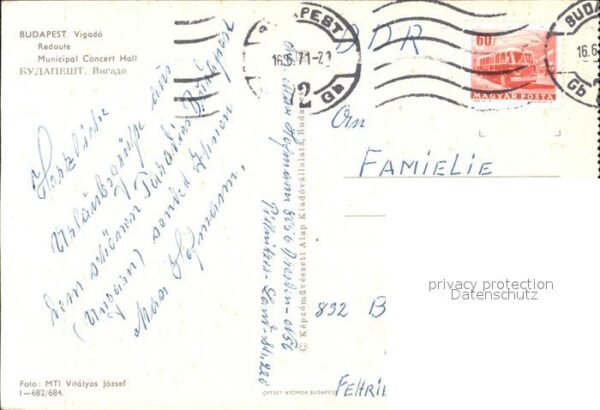 BUDAPEST. Vigadó
Redoute
Municipal Concert Hall
БУДАПЕШТ. Вигадо
Herzliche
Urlaubsgrüße aus
dem schönen Budapest
(Ungarn) sendet Ihnen
Max Hofmann.
Foto: MTI Vitályos József
I—682/684.
BUDAPEST
16.6.71-2
2
Gb
Max Hofmann 8036 Dresden
Pillnitzer-Land-Str. 220
© Képzőművészeti Alap Kiadóvállalata, Budapest
OFFSET-NYOMDA BUDAPEST
DDR
60f
MAGYAR POSTA
BUDA
16.6
Gb
An
FAMIELIE
privacy protection
Datenschutz
892 B
FEHRI